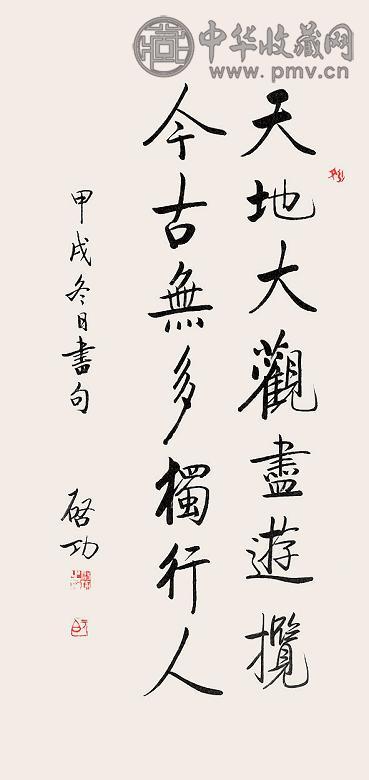 中华收藏网
www.pmv.cn
天地大觀盡遊攬
今古無多獨行人
甲戌冬日書句
啓功